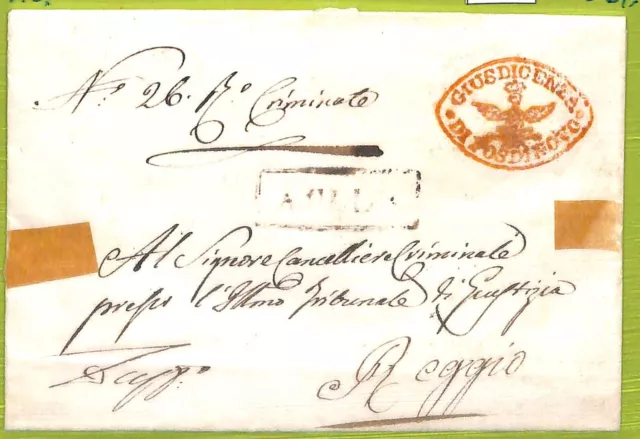 N.º 26. R.º Criminale
GIUSDICENZA
DI FOSDINOVO
AULLA
Al Signore Cancelliere Criminale
presso l'Illmo Tribunale di Giustizia
Reggio